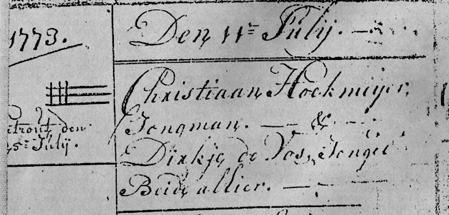 1773.
Den 11ᵉ Julij.
Christiaan Hoekmeijer,
Jongman. — &
Getrout den
25ᵉ Julij.
Dirkje de Vos, Jonge
Beide allier.